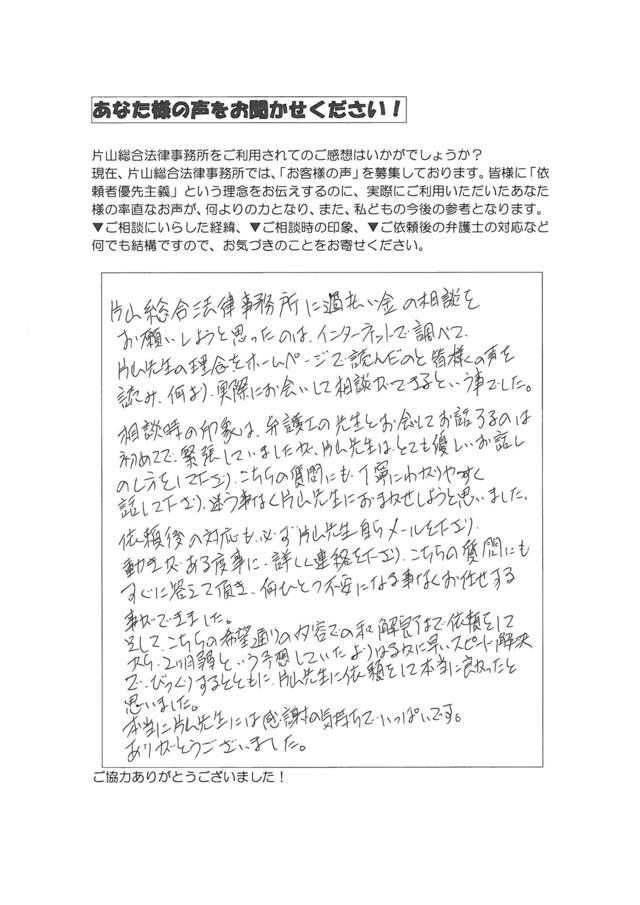 あなた様の声をお聞かせください！
片山総合法律事務所をご利用されてのご感想はいかがでしょうか？
現在、片山総合法律事務所では、「お客様の声」を募集しております。皆様に「依
頼者優先主義」という理念をお伝えするのに、実際にご利用いただいたあなた
様の率直なお声が、何よりの力となり、また、私どもの今後の参考となります。
▼ご相談にいらした経緯、▼ご相談時の印象、▼ご依頼後の弁護士の対応など
何でも結構ですので、お気づきのことをお寄せください。
片山総合法律事務所に過払い金の相談を
お願いしようと思ったのは、インターネットで調べて、
片山先生の理念をホームページで読んだのと皆様の声を
読み、何より、実際にお会いして相談ができるという事でした。
相談時の印象は、弁護士の先生とお会してお話するのは
初めてで、緊張していましたが、片山先生は、とても優しいお話し
のし方をして下さり、こちらの質問にも、丁寧にわかりやすく
話して下さり、迷う事なく片山先生におまかせしようと思いました。
依頼後の対応も、必ず片山先生自らメールを下さり、
動きがある度事に、詳しく連絡を下さり、こちらの質問にも
すぐに答えて頂き、何ひとつ不安になる事なくお任せする
事ができました。
そして、こちらの希望通りの内容での和解完了まで依頼をして
から、2ヶ月弱という予想していたよりはるかに早いスピード解決
で、びっくりするとともに、片山先生に依頼をして本当に良かったと
思いました。
本当に片山先生には感謝の気持ちでいっぱいです。
ありがとうございました。
ご協力ありがとうございました！